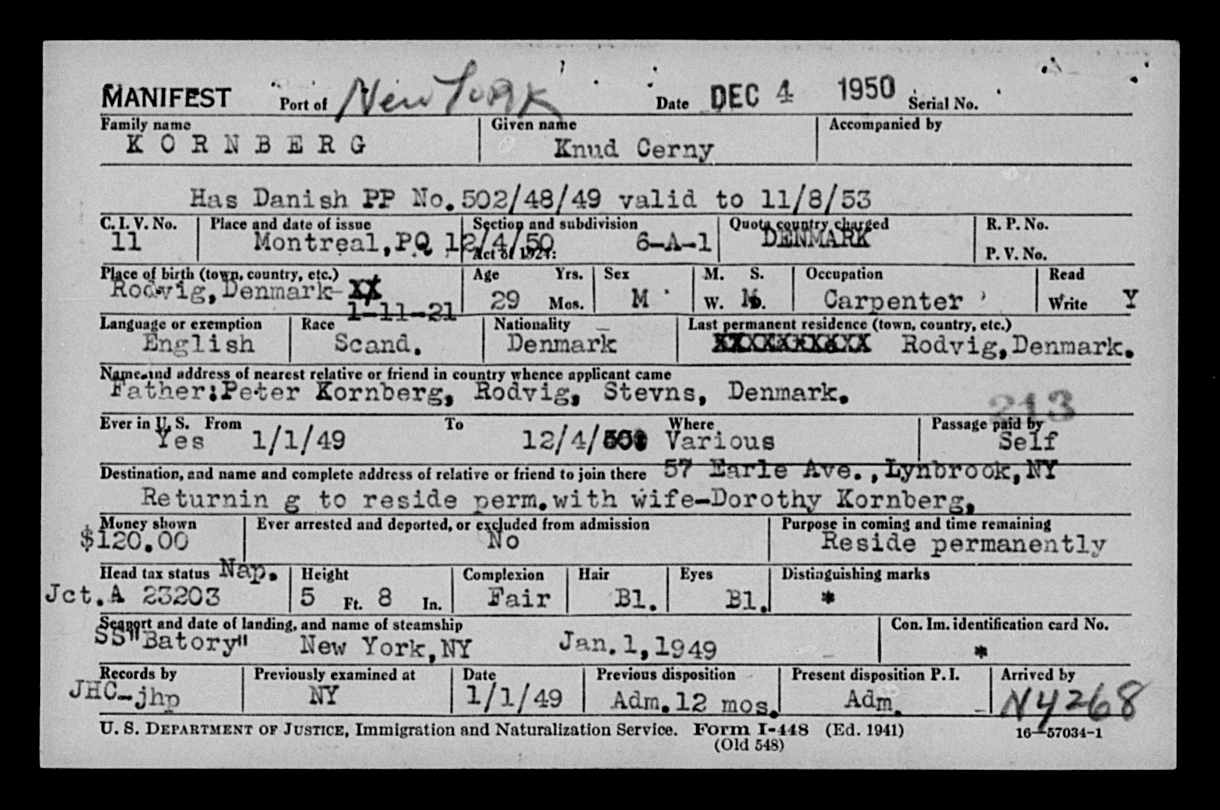 MANIFEST Port of New York Date DEC 4 1950 Serial No.
Family name Given name Accompanied by
KORNBERG Knud Cerny
Has Danish PP No. 502/48/49 valid to 11/8/53
C. I. V. No. Place and date of issue Section and subdivision Quota country charged R. P. No.
11 Montreal, PQ 12/4/50 6-A-1 DENMARK
Act of 1924: P. V. No.
Place of birth (town, country, etc.) Age Yrs. Sex M. S. Occupation Read
Rodvig, Denmark- 29 Mos. M W. D. Carpenter Write Y
1-11-21
Language or exemption Race Nationality Last permanent residence (town, country, etc.)
English Scand. Denmark XXXXXXXXXX Rodvig, Denmark.
Name and address of nearest relative or friend in country whence applicant came
Father:Peter Kornberg, Rodvig, Stevns, Denmark.
213
Ever in U. S. From To Where Passage paid by
Yes 1/1/49 12/4/50 Various Self
Destination, and name and complete address of relative or friend to join there 57 Earle Ave., Lynbrook, NY
Returnin g to reside perm. with wife-Dorothy Kornberg,
Money shown Ever arrested and deported, or excluded from admission Purpose in coming and time remaining
$120.00 No Reside permanently
Head tax status Nap. Height Complexion Hair Eyes Distinguishing marks
Jct. A 23203 5 Ft. 8 In. Fair Bl. Bl. *
Seaport and date of landing, and name of steamship Con. Im. identification card No.
SS"Batory" New York, NY Jan. 1, 1949 *
Records by Previously examined at Date Previous disposition Present disposition P. I. Arrived by
JHC-jhp NY 1/1/49 Adm. 12 mos. Adm. NY268
U. S. DEPARTMENT OF JUSTICE, Immigration and Naturalization Service. Form I-448 (Ed. 1941) 16—57034-1
(Old 548)